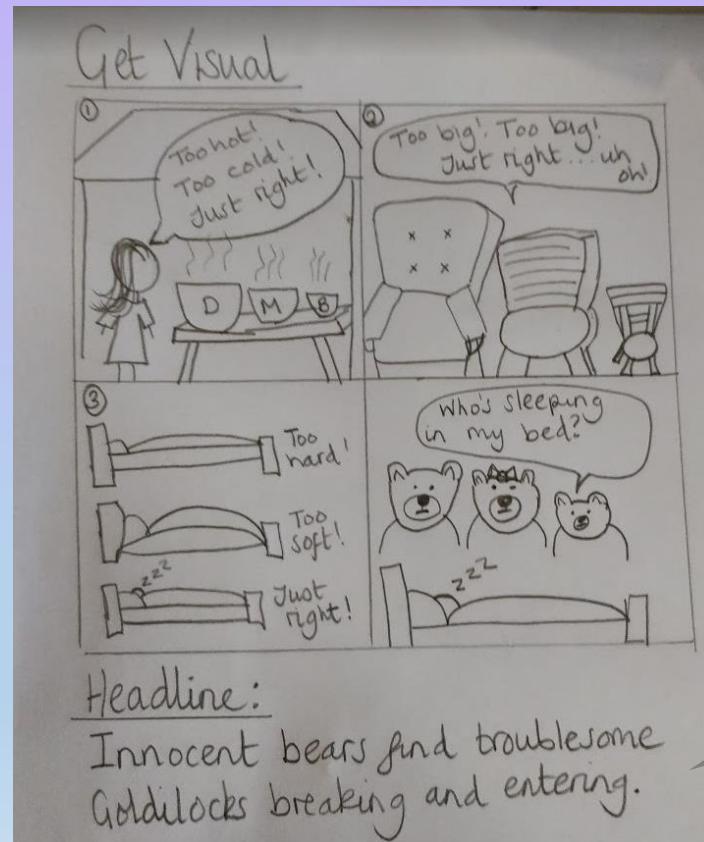 Get Visual
①
Too hot!
Too cold!
Just right!
D M B
②
Too big! Too big!
Just right...uh
oh!
③
Too
hard!
Too
soft!
zzz
Just
right!
Who's sleeping
in my bed?
zzz
Headline:
Innocent bears find troublesome
Goldilocks breaking and entering.